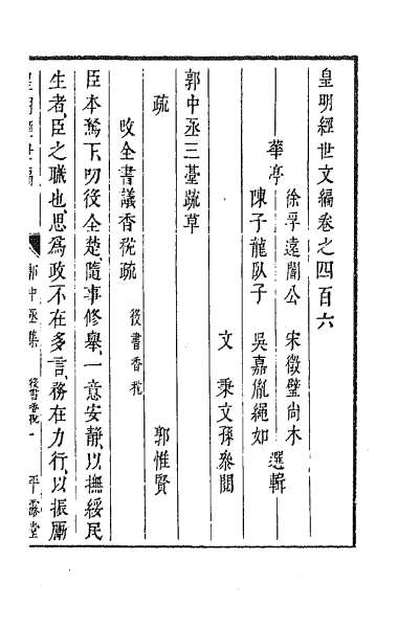 皇明經世文編卷之四百六
華亭
徐孚遠闇公 宋徵璧尚木
陳子龍臥子 吳嘉胤繩如
選輯
文秉文孫參閱
郭中丞三臺疏草
疏 郭惟賢
改全書議香稅疏 後書香稅
臣本駑下叨役全楚隨事修舉一意安靜以撫綏民
生者臣之職也思為政不在多言務在力行以振勵
皇明經世編 郭中丞集 後書香稅 一 平露堂